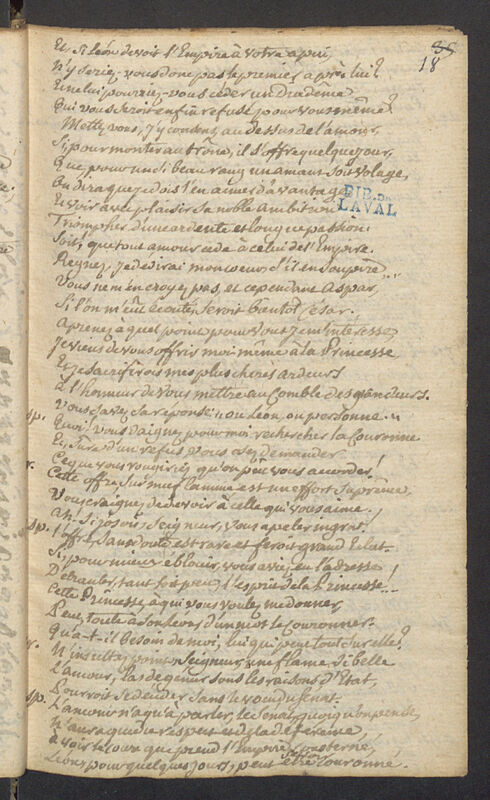 35
18
Et si Léon devoit l'Empire à votre apui,
N'y seriez-vous donc pas le premier après lui?
Et ne lui pourriez-vous céder un Diadème
Qui vous seroit enfin refusé pour vous même?
Mettez vous, j'y consens, au dessus de l'amour,
Si, pour monter au trône, il s'offre quelque jour.
Que, pour un si beau rang un amant soit volage,
On dira que je dois l'en aimer d'avantage,
Et voir avec plaisir sa noble ambition
Triompher d'une ardente et longue passion.
BIB. DE
LAVAL
Soit, que tout amour cède à celui de l'Empire.
Regnez, je dédirai mon coeur s'il en soupire...
Vous ne m'en croyez pas, et cependant Aspar,
Si l'on m'eût écouté, seroit bientôt César.
Aprenez à quel point pour vous je m'intéresse;
Je viens de vous offrir moi-même à la Princesse
Et je sacrifiois mes plus chères ardeurs
à l'honneur de vous mettre au comble des grandeurs.
Vous savez sa réponse: "ou Léon, ou personne."
sp. Quoi! vous daignez pour moi rechercher la Couronne
Et, sûre d'un refus, vous osez demander
Ce que vous rougiriez qu'on pût vous accorder!
r. Cette offre sur ma flamme est un effort suprême,
Vous craignez de devoir à celle qui vous aime.
Ah! si j'osois, Seigneur, vous apeler ingrat.
sp. L'offre, sans doute, est rare et feroit grand éclat.
Si, pour mieux éblouir, vous aviez eu l'adresse
D'ébranler, tant soit peu, l'esprit de la Princesse!...
Cette Princesse, à qui vous voulez me donner,
Peut, toute à son Léon, d'un mot le couronner.
Qu'a-t-il besoin de moi, lui qui peut tout sur elle?
r. N'insultez point, Seigneur, une flame si belle
L'amour, las de gémir sous les raisons d'Etat,
Pourroit se décider sans le voeu du Sénat.
sp. L'amour n'a qu'à parler, le Sénat, quoiqu'on pense,
N'aura que du respect et de la déférence,
à voir le cours que prend l'Empire consterné,
Léon, pour quelques jours, peut être couronné.